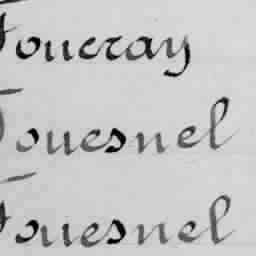 Foucray
Fouesnel
Fouesnel